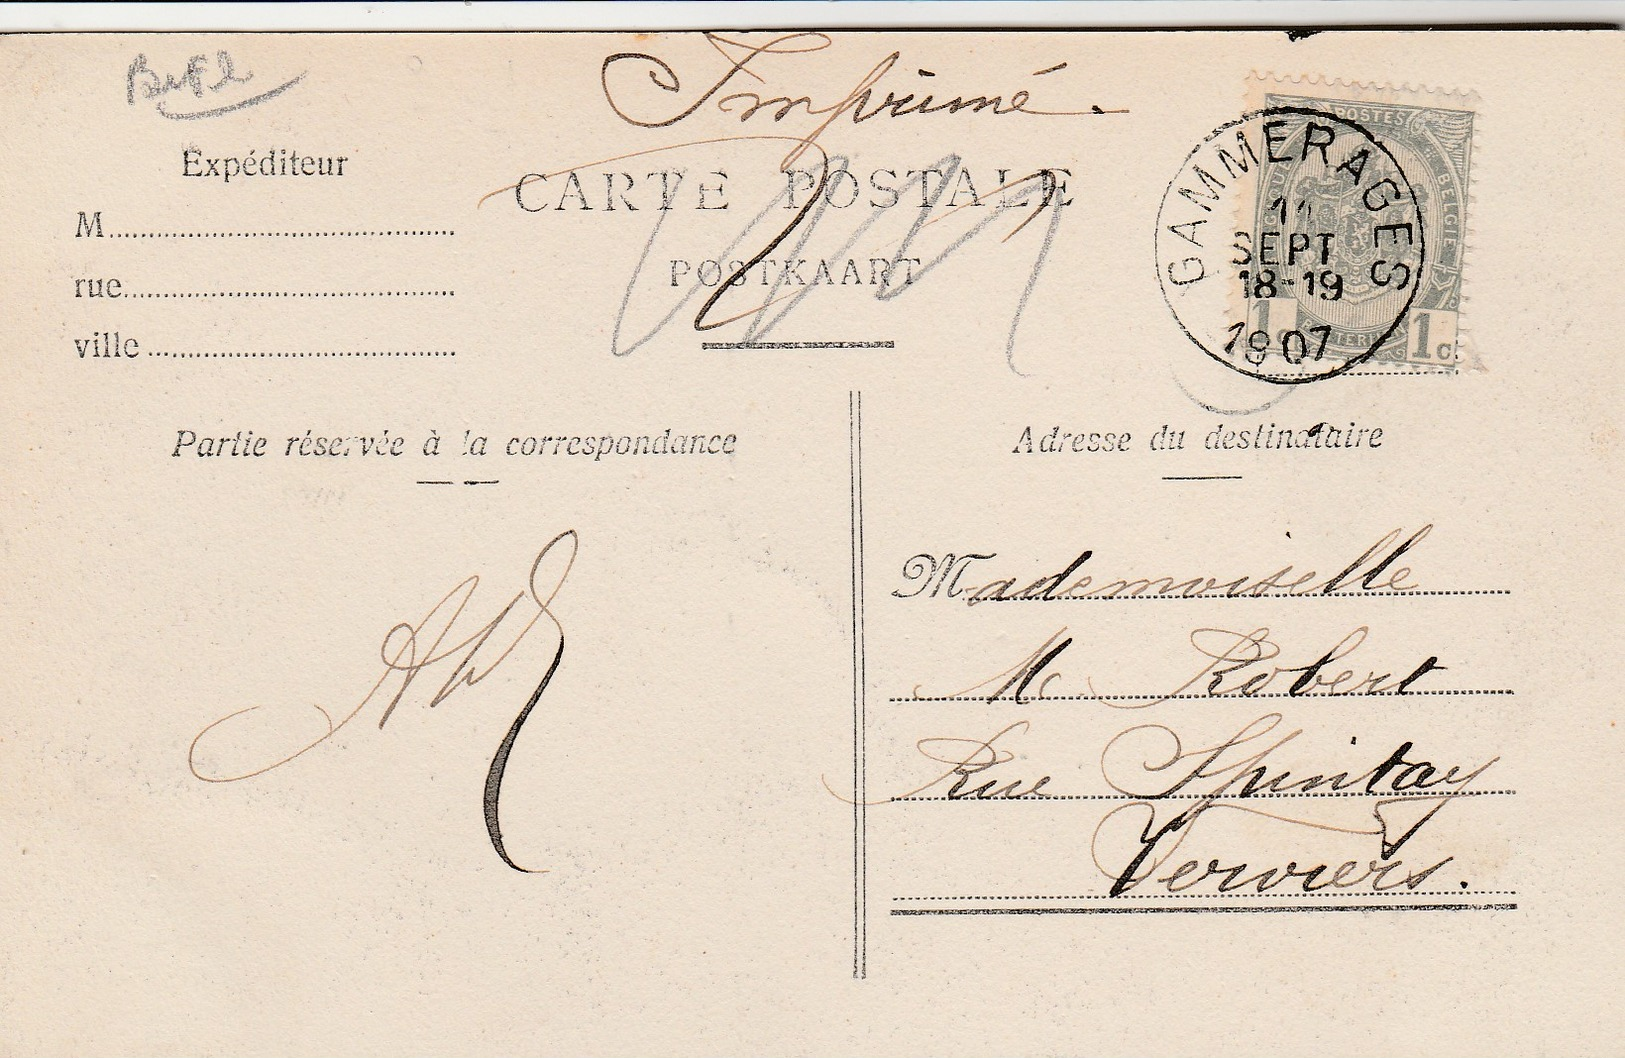 Imprimé.
Expéditeur
M
rue
ville
CARTE POSTALE
POSTKAART
POSTES
BELGIE
1c 1c
GAMMERAGES
11
SEPT
18-19
1907
Partie réservée à la correspondance
Adresse du destinataire
Mademoiselle
M. Robert
Rue Spintay
Verviers.